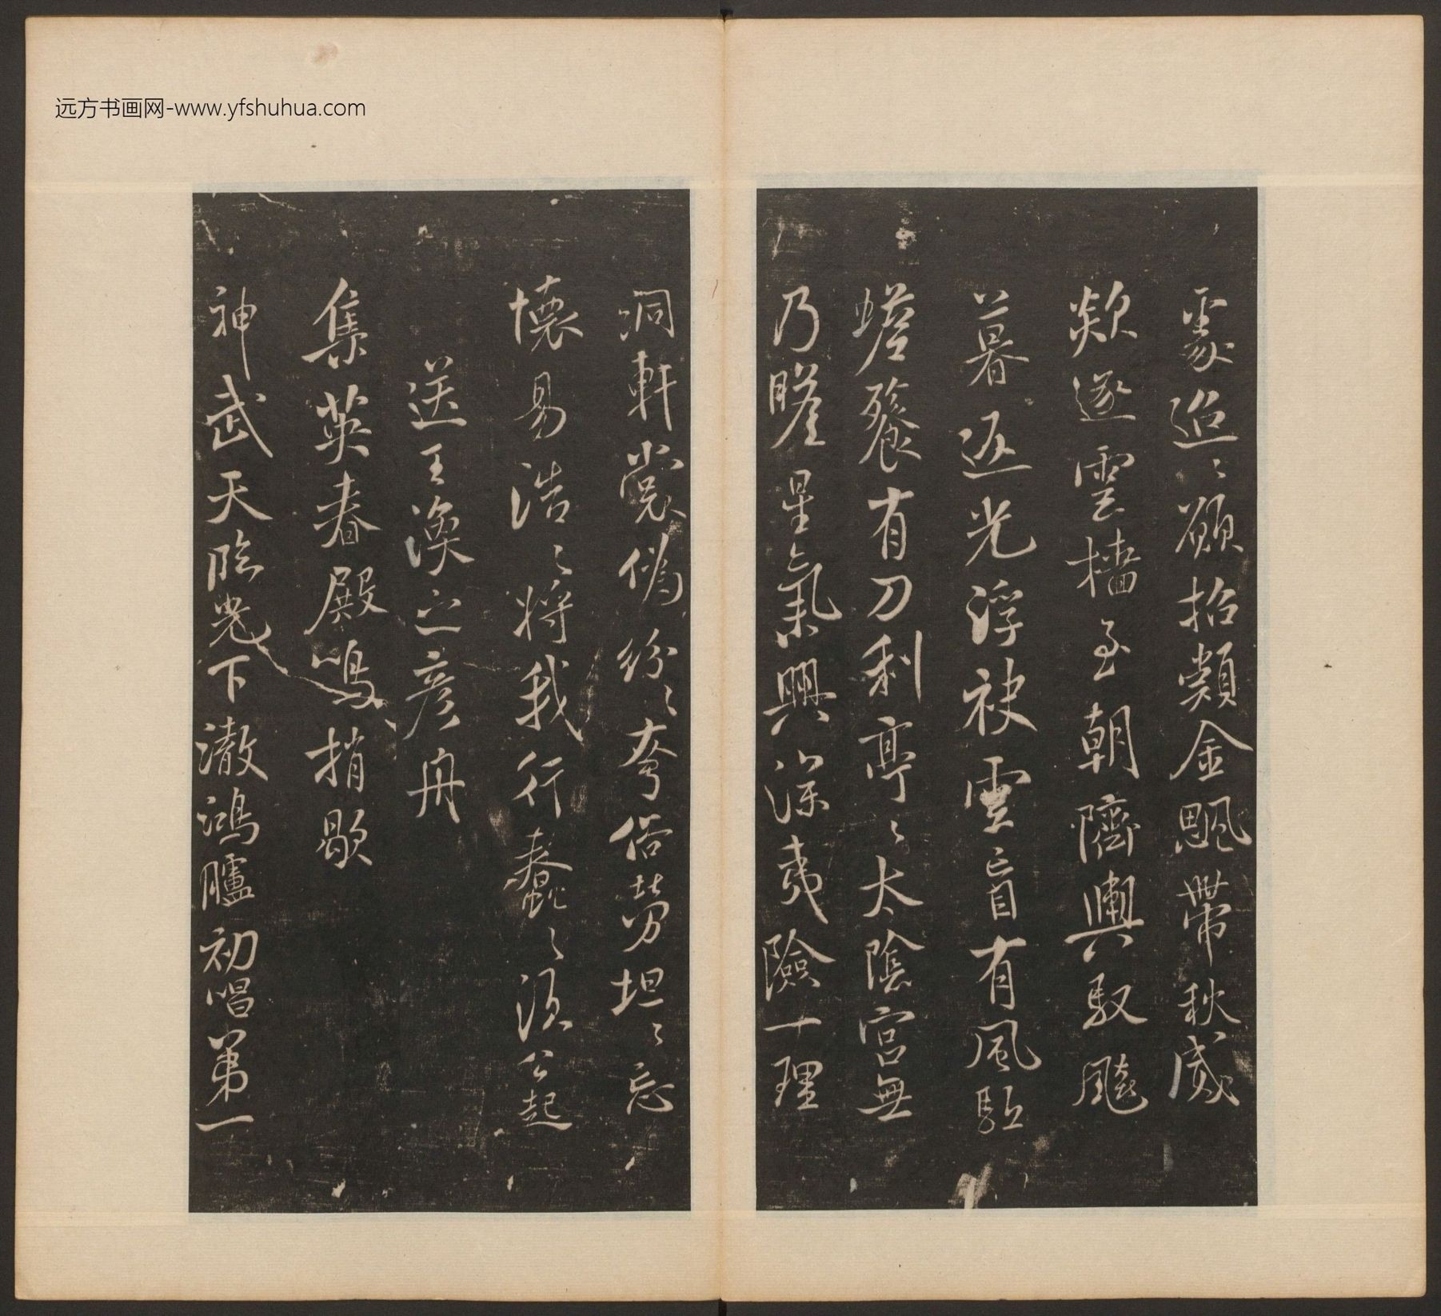 远方书画网-www.yfshuhua.com
處迢〻願招類金飆帶秋威
欻逐雲檣至朝隮輿馭飆
暮返光浮袂雲盲有風驅
蟾餮有刀利亭〻太陰宮無
乃瞻星氣興深夷險一理
洞軒裳偽紛〻夸俗勞坦〻忘
懷易浩〻將我行蠢〻須公起
送王渙之彥舟
集英春殿鳴捎歇
神武天臨光下澈鴻臚初唱第一